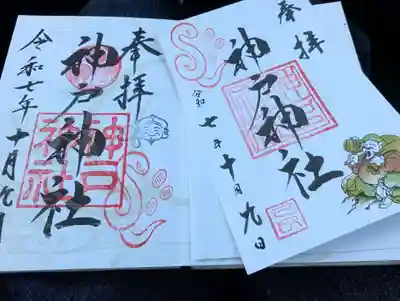 奉拝
神戸神社
令和七年十月九日
神戸
神社
奉拝
神戸神社
令和七年十月九日